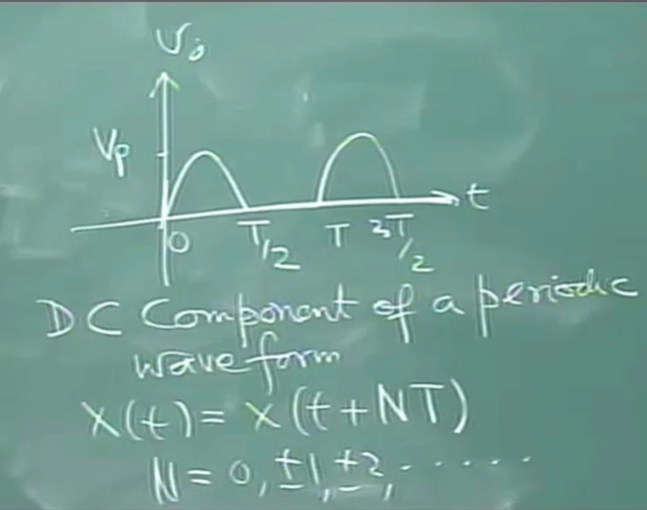 υo
Vp
t
0 T/2 T 3T/2
DC Component of a periodic
waveform
X(t) = X(t+NT)
N = 0, ±1, ±2, ......